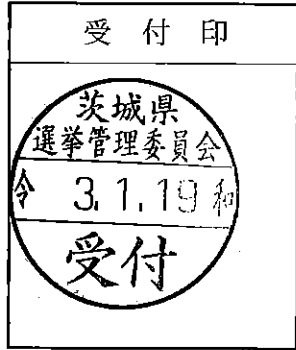 受付印
茨城県
選挙管理委員会
令 3.1.19 和
受付